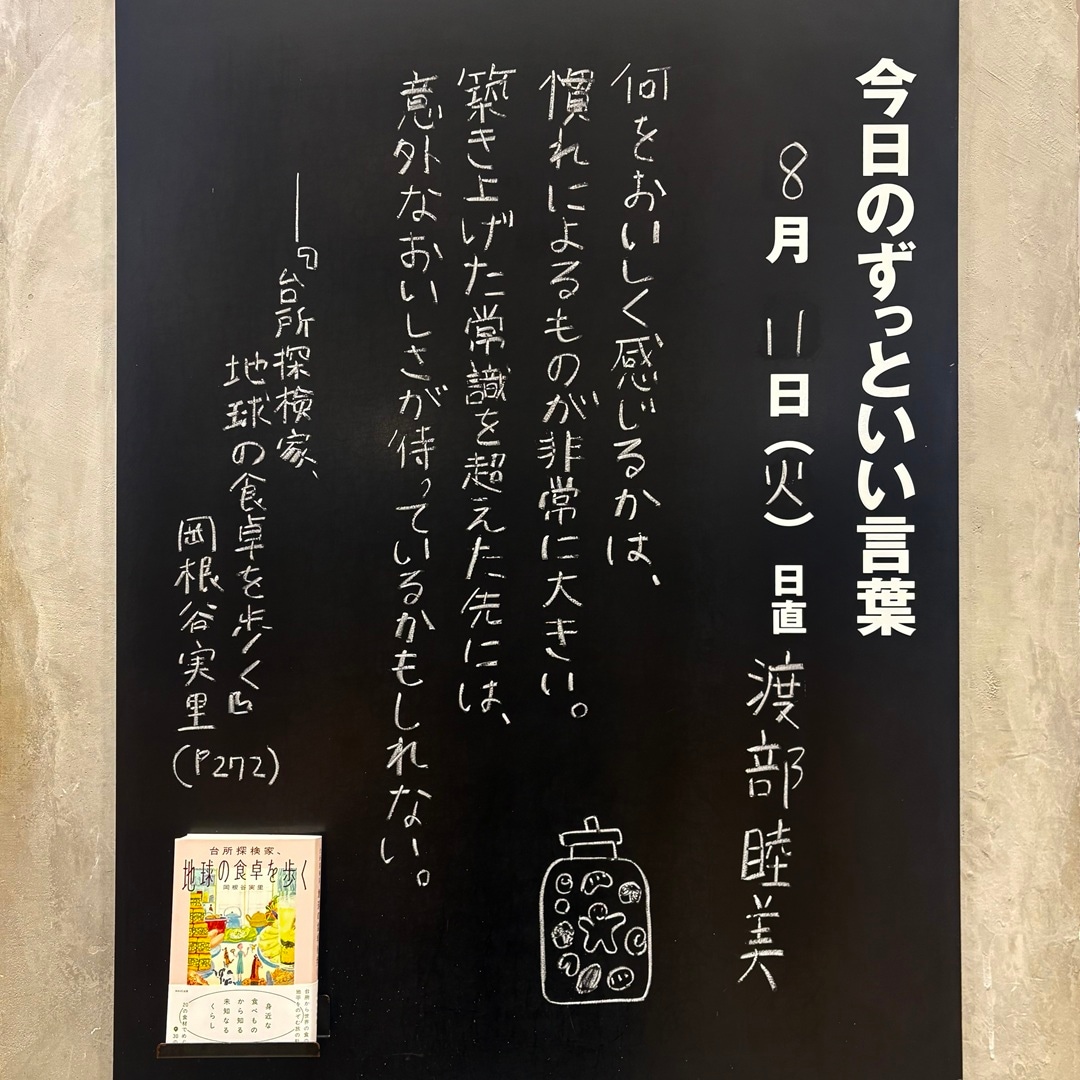 今日のずっといい言葉
8月11日(火) 日直 渡部睦美
何をおいしく感じるかは、
慣れによるものが非常に大きい。
築き上げた常識を超えた先には、
意外なおいしさが待っているかもしれない。
―『台所探検家、
地球の食卓を歩く』
岡根谷実里
(P272)
台所探検家、
地球の食卓を歩く
岡根谷実里
身近な
食べもの
から知る
未知なる
くらし